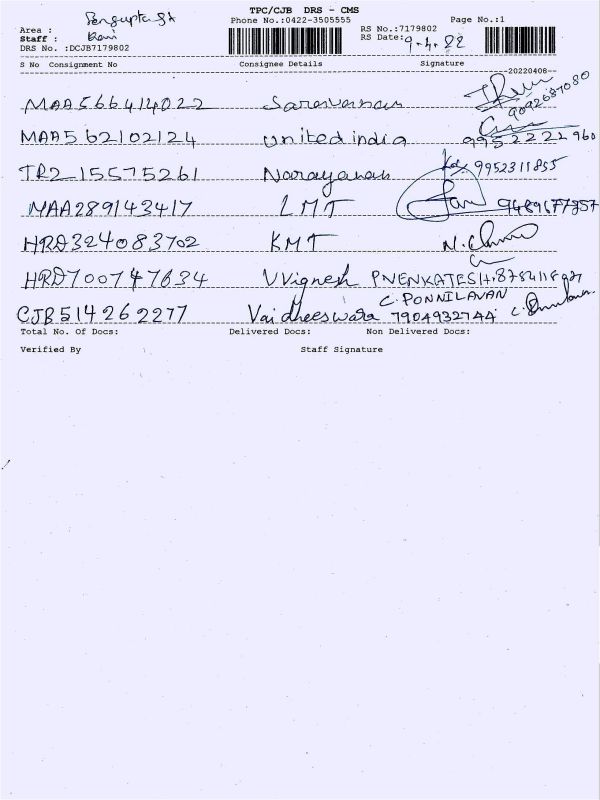 TPC/CJB DRS - CMS
Phone No.:0422-3505555 Page No.:1
Area : Sengupta St
Staff : Ravi
RS No.:7179802
RS Date: 9.4.22
DRS No. :DCJB7179802
S No Consignment No Consignee Details Signature
20220408
MAA566414022 Saravanan 9092687080
MAA562102124 United india 9952222960
TR2 15575261 Narayanan 9952311855
MAA289143417 LMT 9489677357
HRD324083702 KMT
HRD700747634 VVignesh P.VENKATESH.
C. PONNILAVAN
CJB514262277 Vaidheeswara 7904932744
Total No. Of Docs: Delivered Docs: Non Delivered Docs:
Verified By Staff Signature